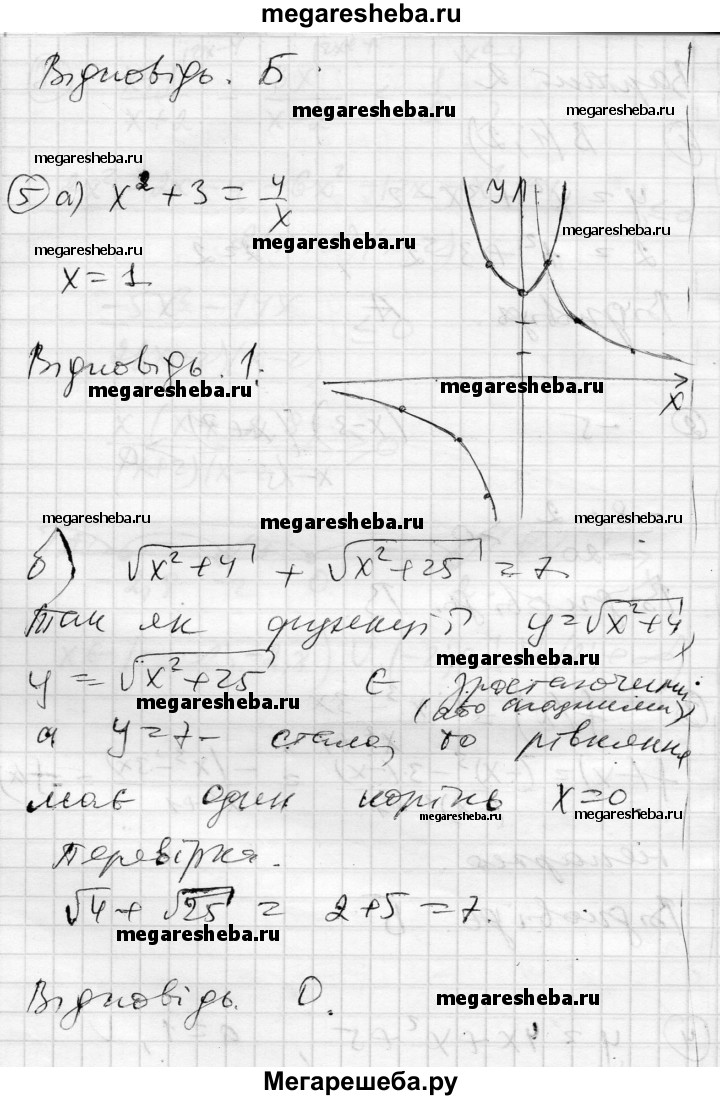 megaresheba.ru
Відповідь. Б.
megaresheba.ru megaresheba.ru
megaresheba.ru
5 а) x² + 3 = 4/x
y
megaresheba.ru megaresheba.ru
megaresheba.ru
x = 1
Відповідь. 1.
megaresheba.ru megaresheba.ru
x
megaresheba.ru megaresheba.ru megaresheba.ru
б) √x²+4 + √x²+25 = 7.
Так як функції y=√x²+4,
y = √x²+25 є зростаючими
megaresheba.ru megaresheba.ru
(або спадними),
а y=7 – стала, то рівняння
має один корінь x=0.
megaresheba.ru megaresheba.ru
Перевірка.
√4 + √25 = 2+5 = 7.
megaresheba.ru megaresheba.ru
Відповідь. 0.
megaresheba.ru megaresheba.ru
Мегарешеба.ру